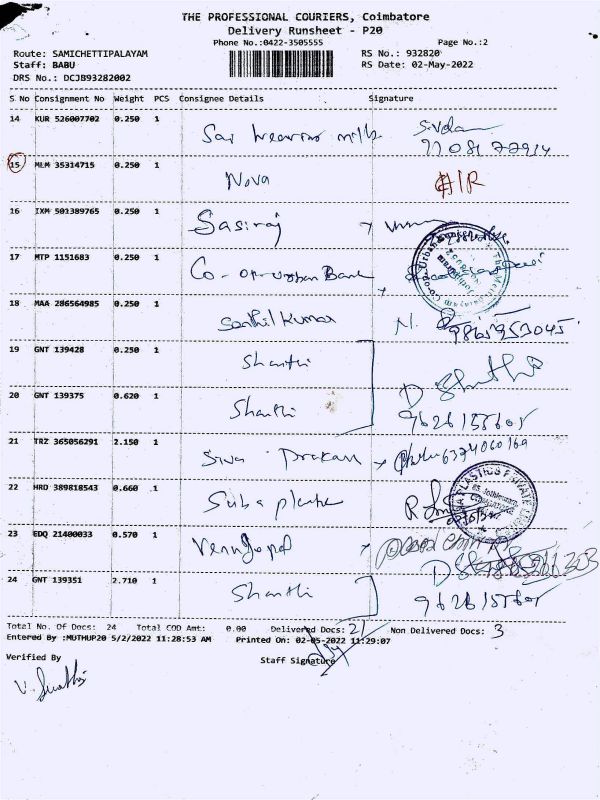 THE PROFESSIONAL COURIERS, Coimbatore
Delivery Runsheet - P20
Phone No.:0422-3505555 Page No.:2
Route: SAMICHETTIPALAYAM RS No.: 932820
Staff: BABU RS Date: 02-May-2022
DRS No.: DCJB93282002
S No Consignment No Weight PCS Consignee Details Signature
14 KUR 526007702 0.250 1 Sai
15 MLM 35314715 0.250 1 Nova
16 IXM 501389765 0.250 1 Sasiraj
17 MTP 1151683 0.250 1 Co-op urban Bank
18 MAA 286564985 0.250 1 Senthil Kumar N. 9865953045
19 GNT 139428 0.250 1 Shanthi
20 GNT 139375 0.620 1 Shanthi 9626155605
21 TRZ 365056291 2.150 1 Siva 6374060169
22 HRD 389818543 0.660 1 Suba
23 EDQ 21400033 0.570 1 Venugopal
24 GNT 139351 2.710 1 Shanthi 9626155605
Total No. Of Docs: 24 Total COD Amt: 0.00 Delivered Docs: 21 Non Delivered Docs: 3
Entered By :MUTHUP20 5/2/2022 11:28:53 AM Printed On: 02-05-2022 11:29:07
Verified By Staff Signature